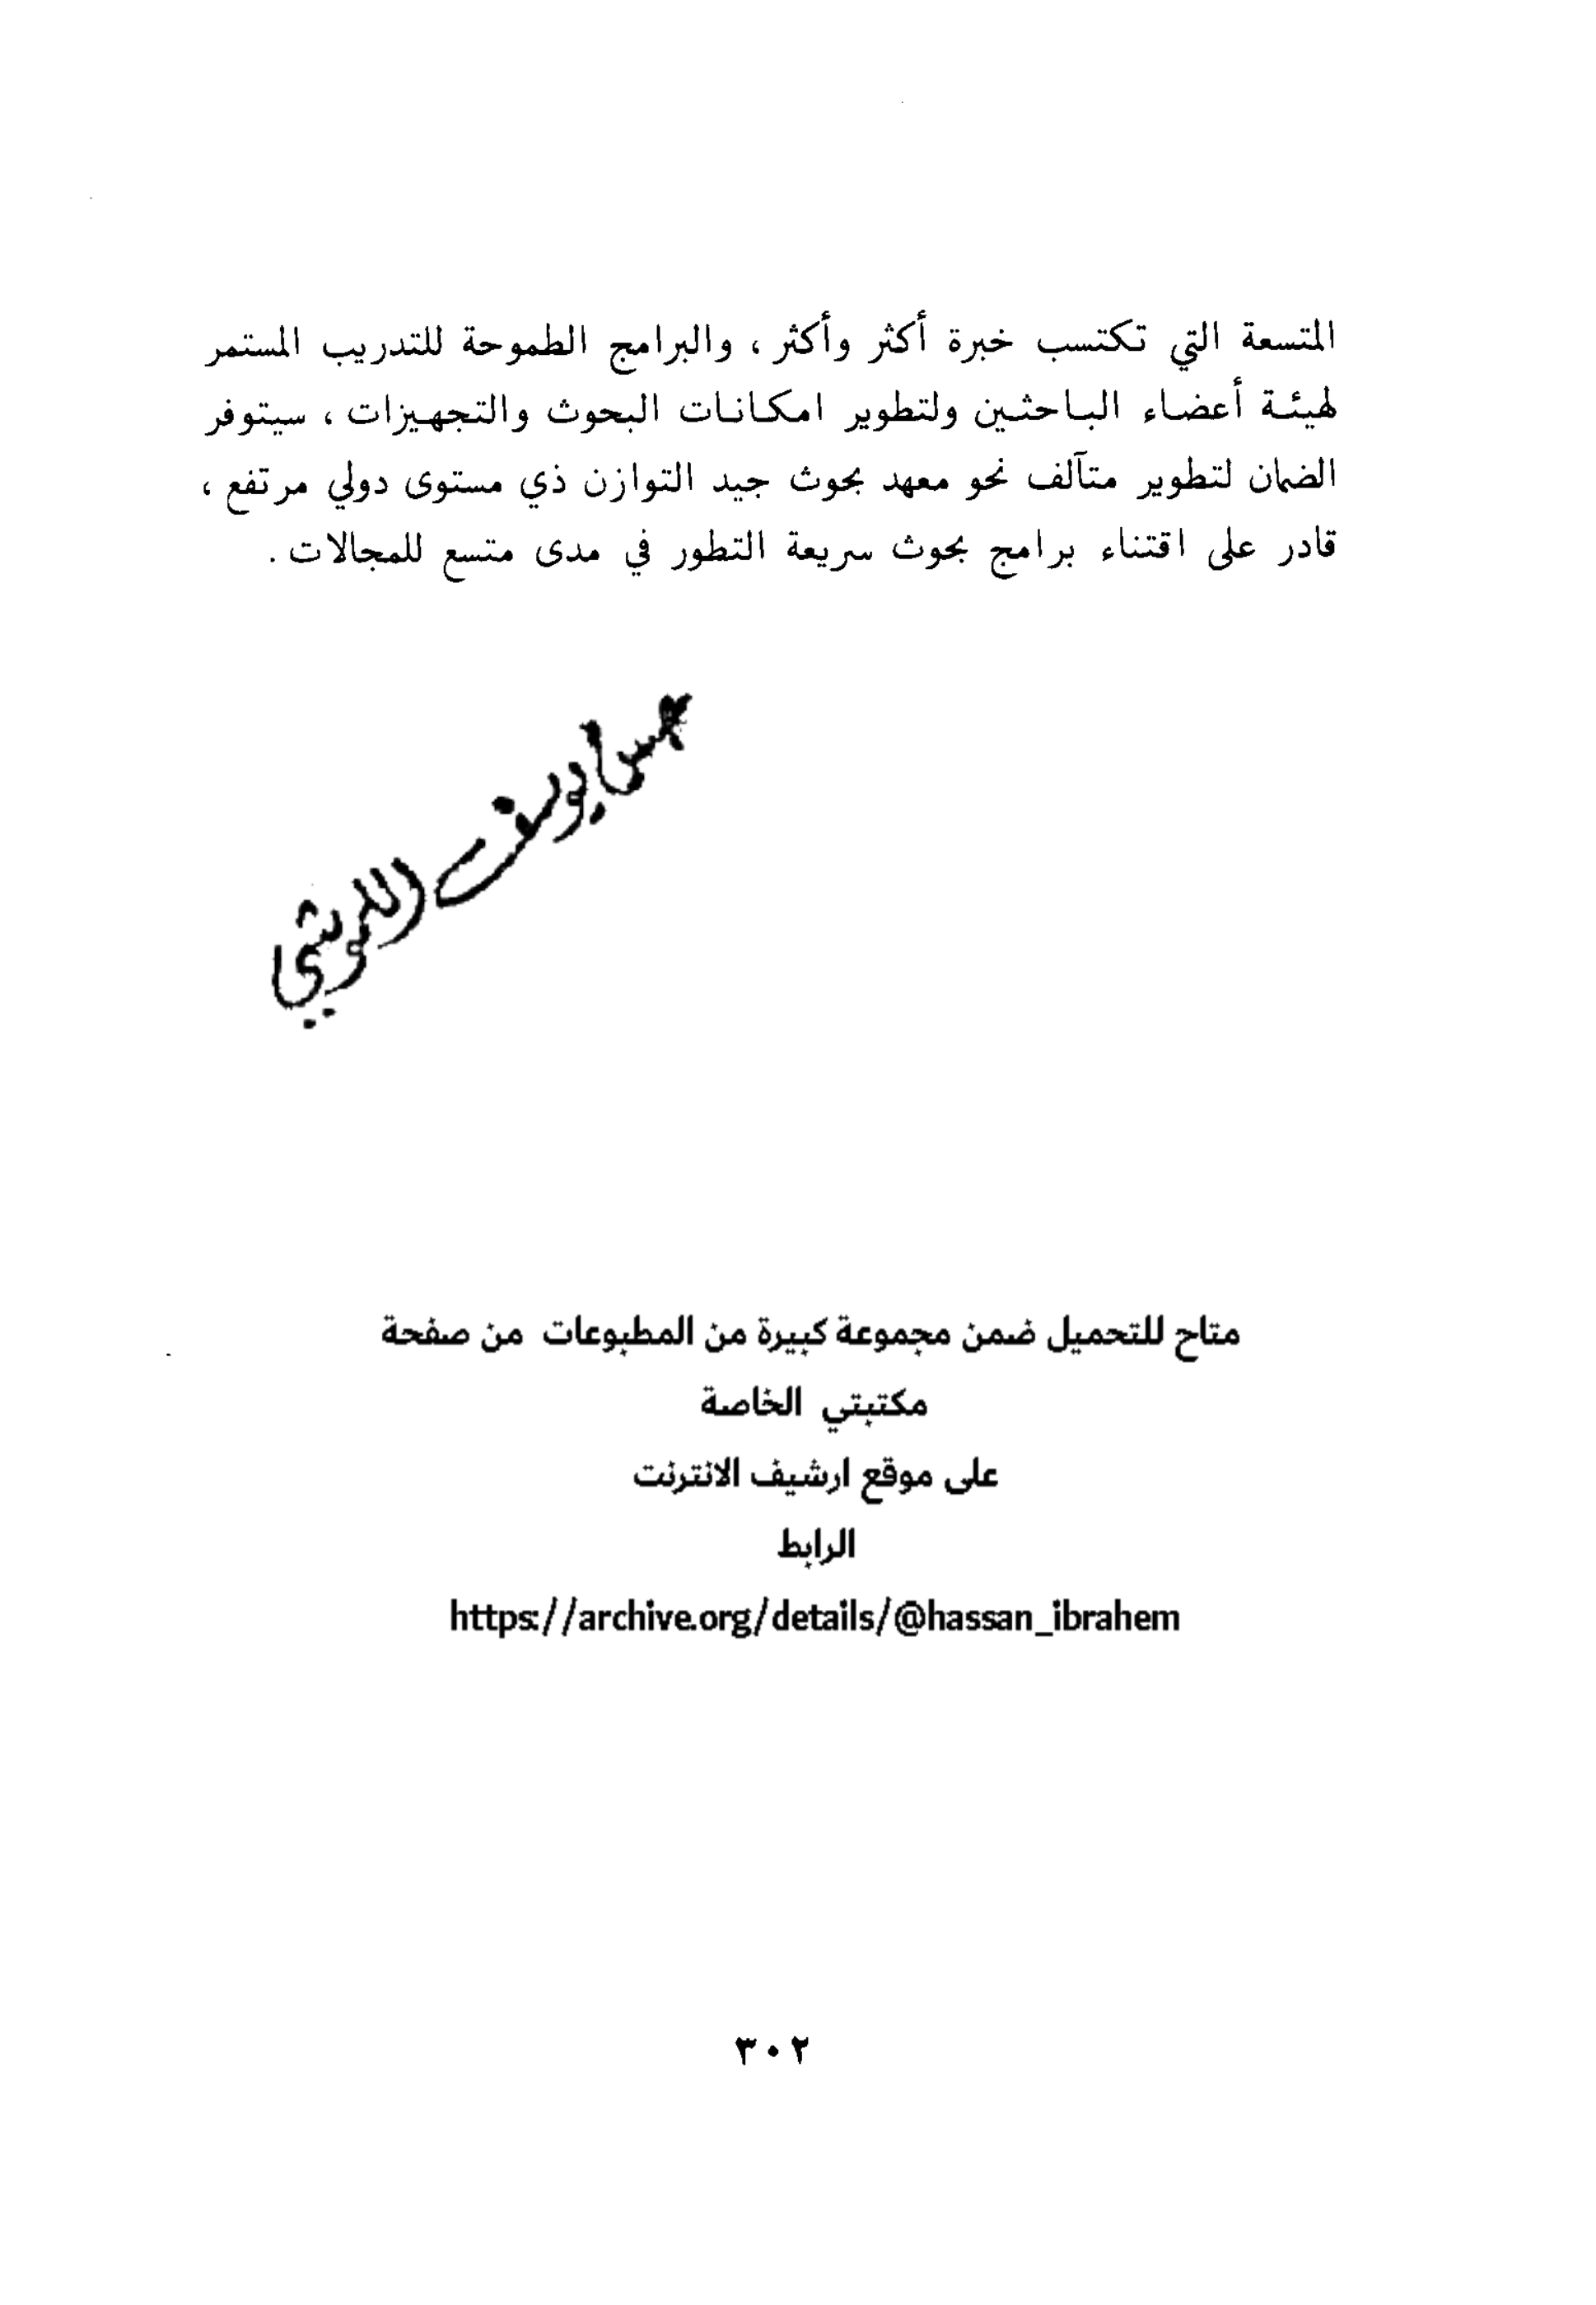 المتسعة التي تكتسب خبرة أكثر وأكثر ، والبرامج الطموحة للتدريب المستمر
لهيئة أعضاء الباحثين ولتطوير امكانات البحوث والتجهيزات ، سيتوفر
الضمان لتطوير متآلف نحو معهد بحوث جيد التوازن ذي مستوى دولي مرتفع ،
قادر على اقتناء برامج بحوث سريعة التطور في مدى متسع للمجالات .
يوسف
متاح للتحميل ضمن مجموعة كبيرة من المطبوعات من صفحة
مكتبتي الخاصة
على موقع ارشيف الانترنت
الرابط
https://archive.org/details/@hassan_ibrahem
٣٠٢